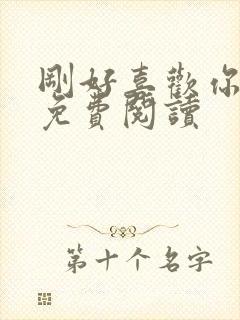 剛好喜歡你
免費閱讀
第十个名字